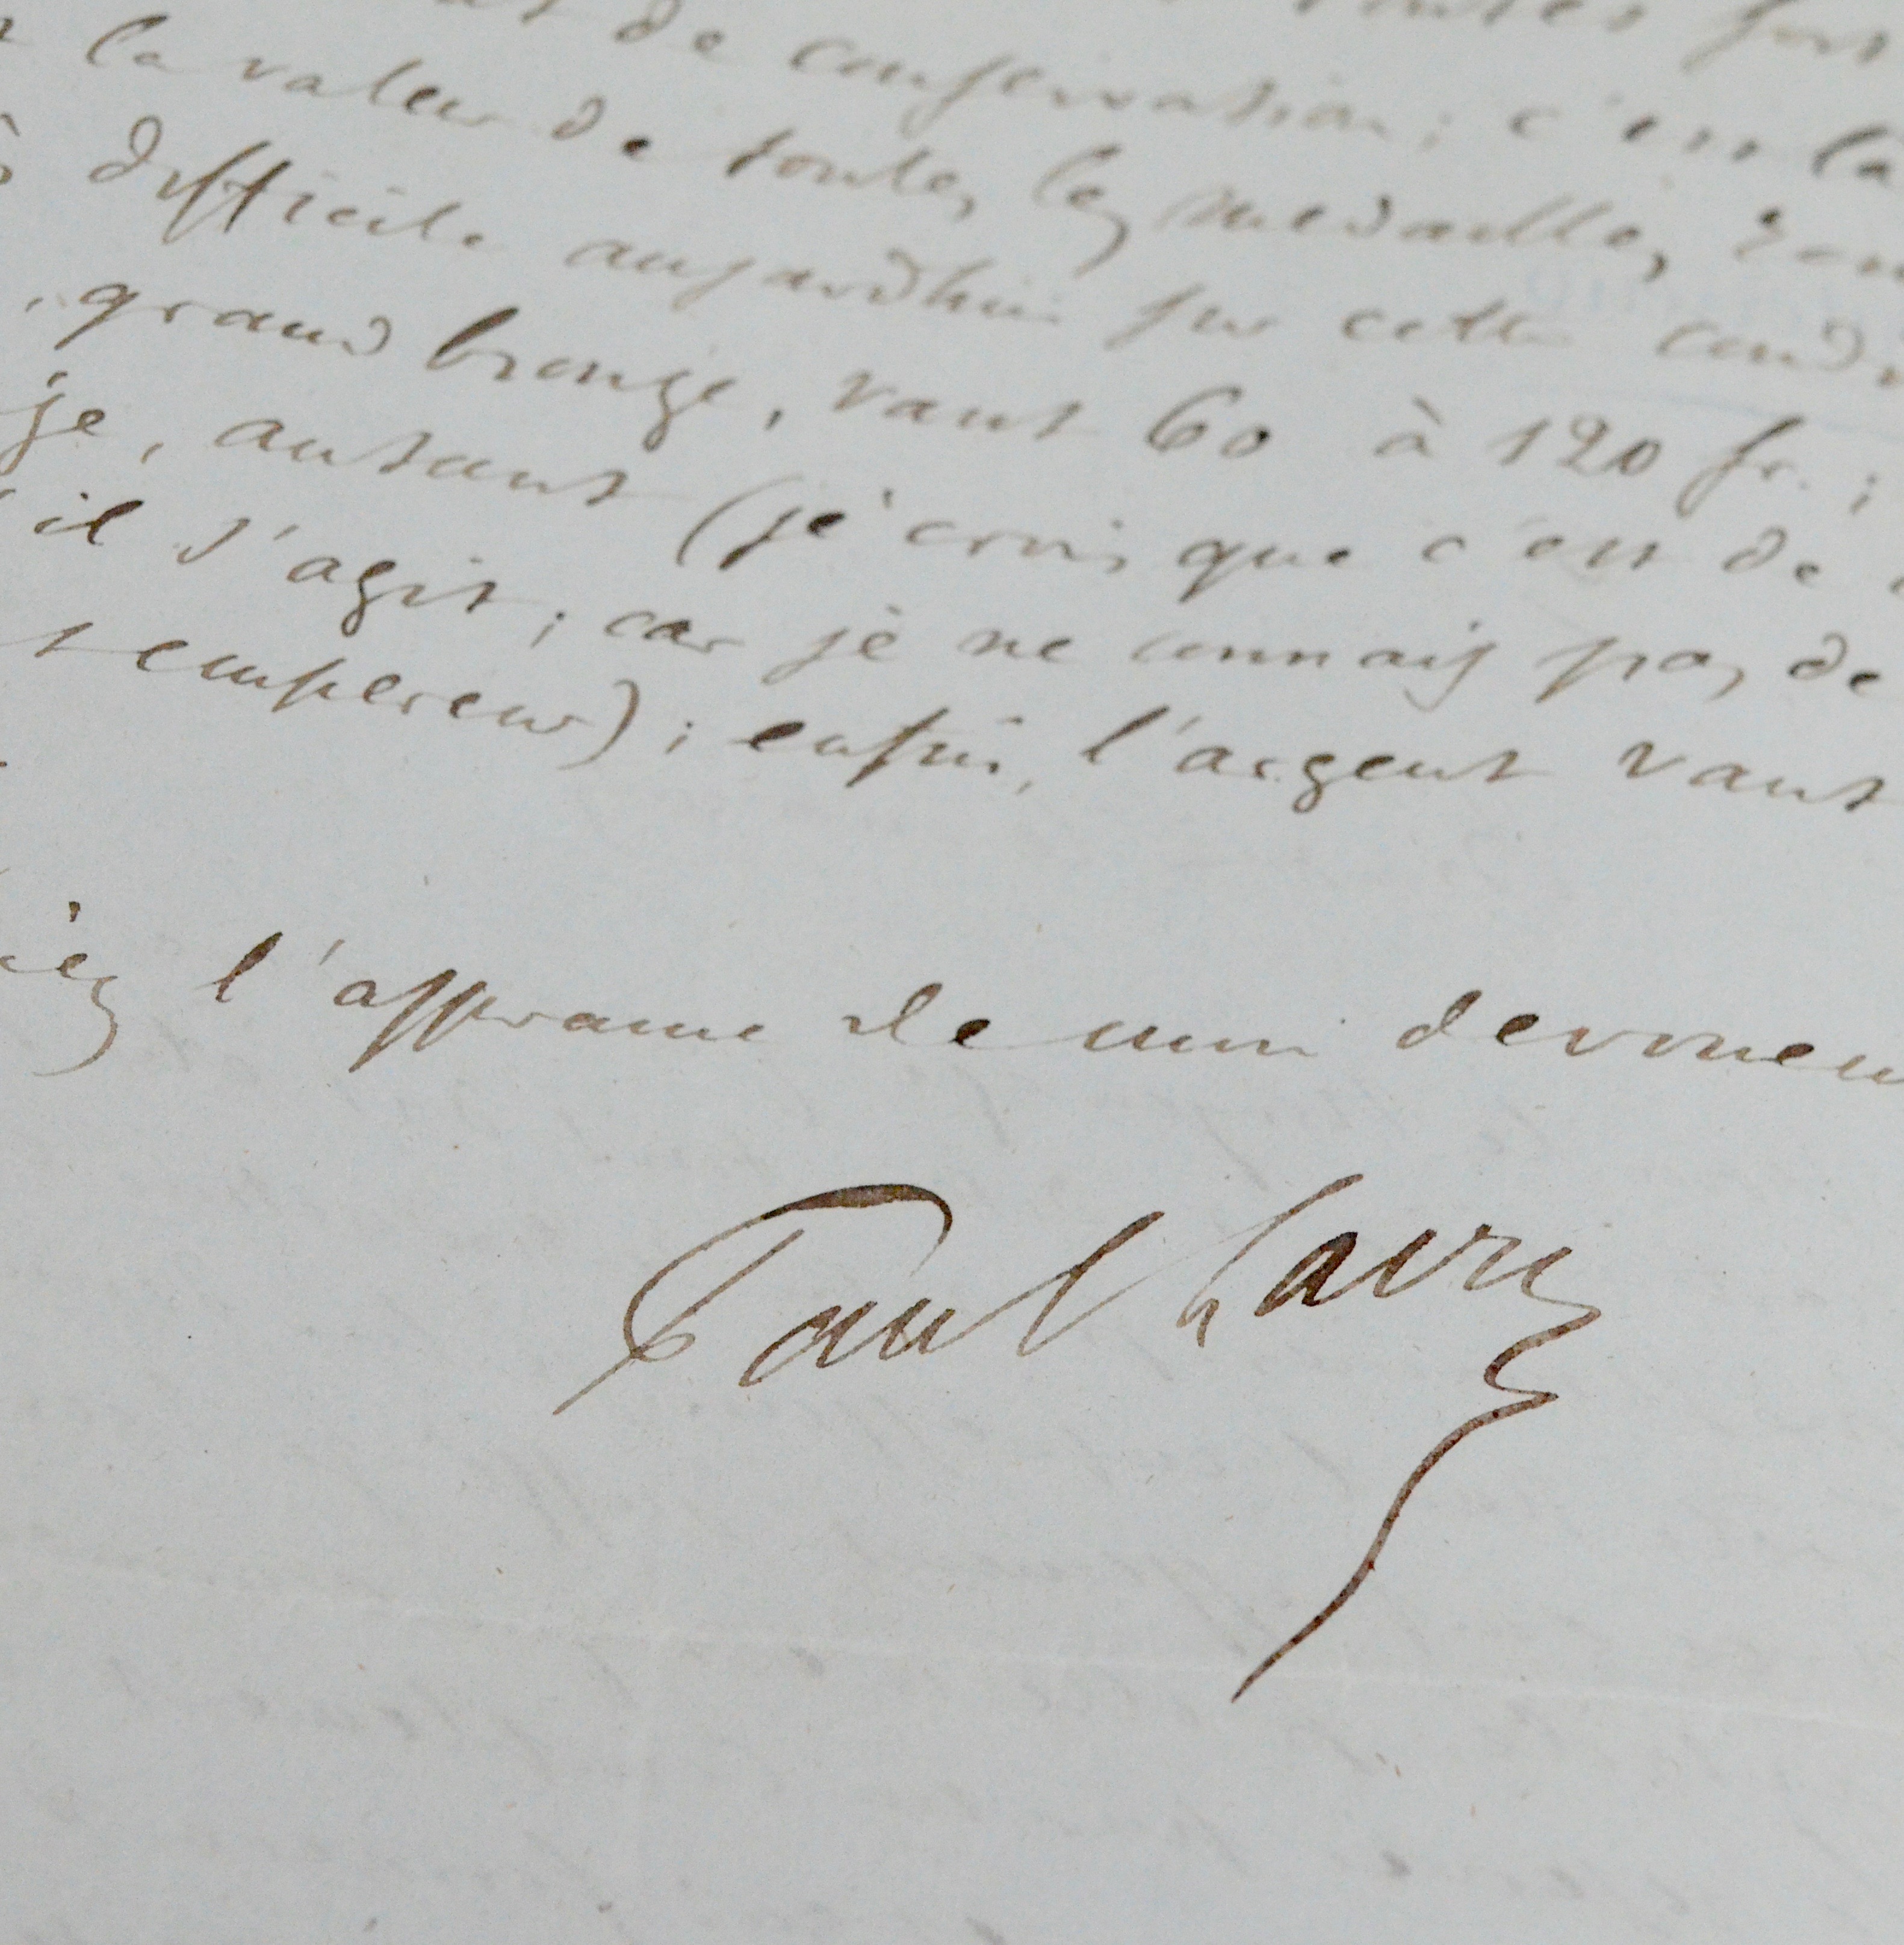 de conservation ; c'est la
la valeur de toutes les medailles,
difficile aujourdhui sur cette
, grand bronze, vaut 60 à 120 fr. ;
je, autant (je crois que c'est de
il s'agit ; car je ne connais pas de
empereur) ; enfin, l'argent vaut
l'assurance de mon devouem
Paul Lacroix